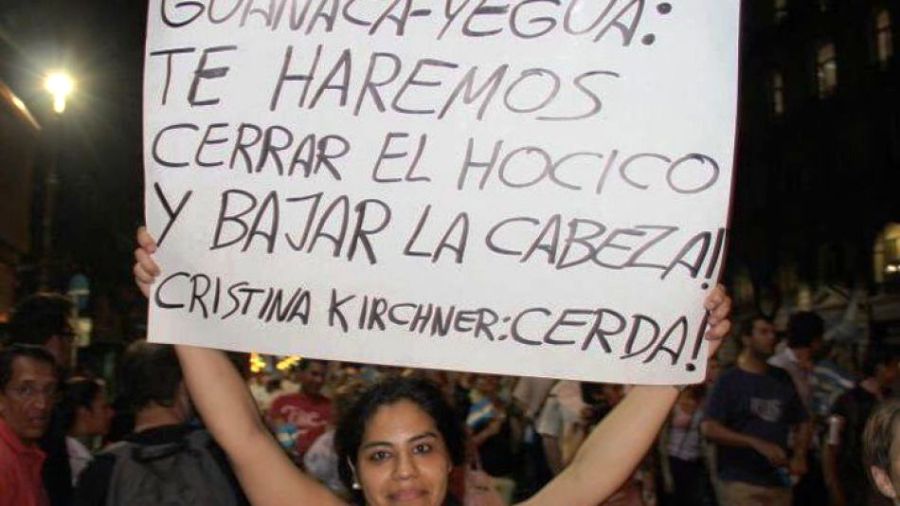 GUANACA-YEGUA:
TE HAREMOS
CERRAR EL HOCICO
Y BAJAR LA CABEZA!
CRISTINA KIRCHNER: CERDA!